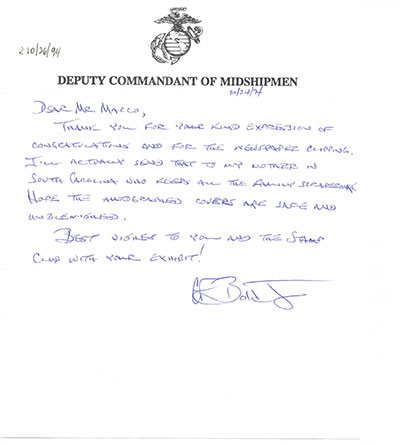 2 10/26/94
DEPUTY COMMANDANT OF MIDSHIPMEN
10/24/94
DEAR MR. MACCO,
THANK YOU FOR YOUR KIND EXPRESSION OF
CONGRATULATIONS AND FOR THE NEWSPAPER CLIPPING.
I'LL ACTUALLY SEND THAT TO MY MOTHER IN
SOUTH CAROLINA WHO KEEPS ALL THE FAMILY SCRAPBOOKS.
HOPE THE AUTOGRAPHED COVERS ARE SAFE AND
UNBLEMISHED.
BEST WISHES TO YOU AND THE STAMP
CLUB WITH YOUR EXHIBIT!